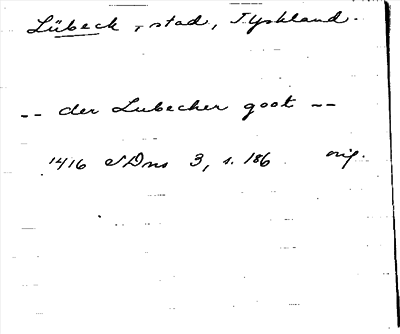 Lübeck, stad, Tyskland.
-- der Lubecker goot --
1416 SDns 3, s. 186 orig.